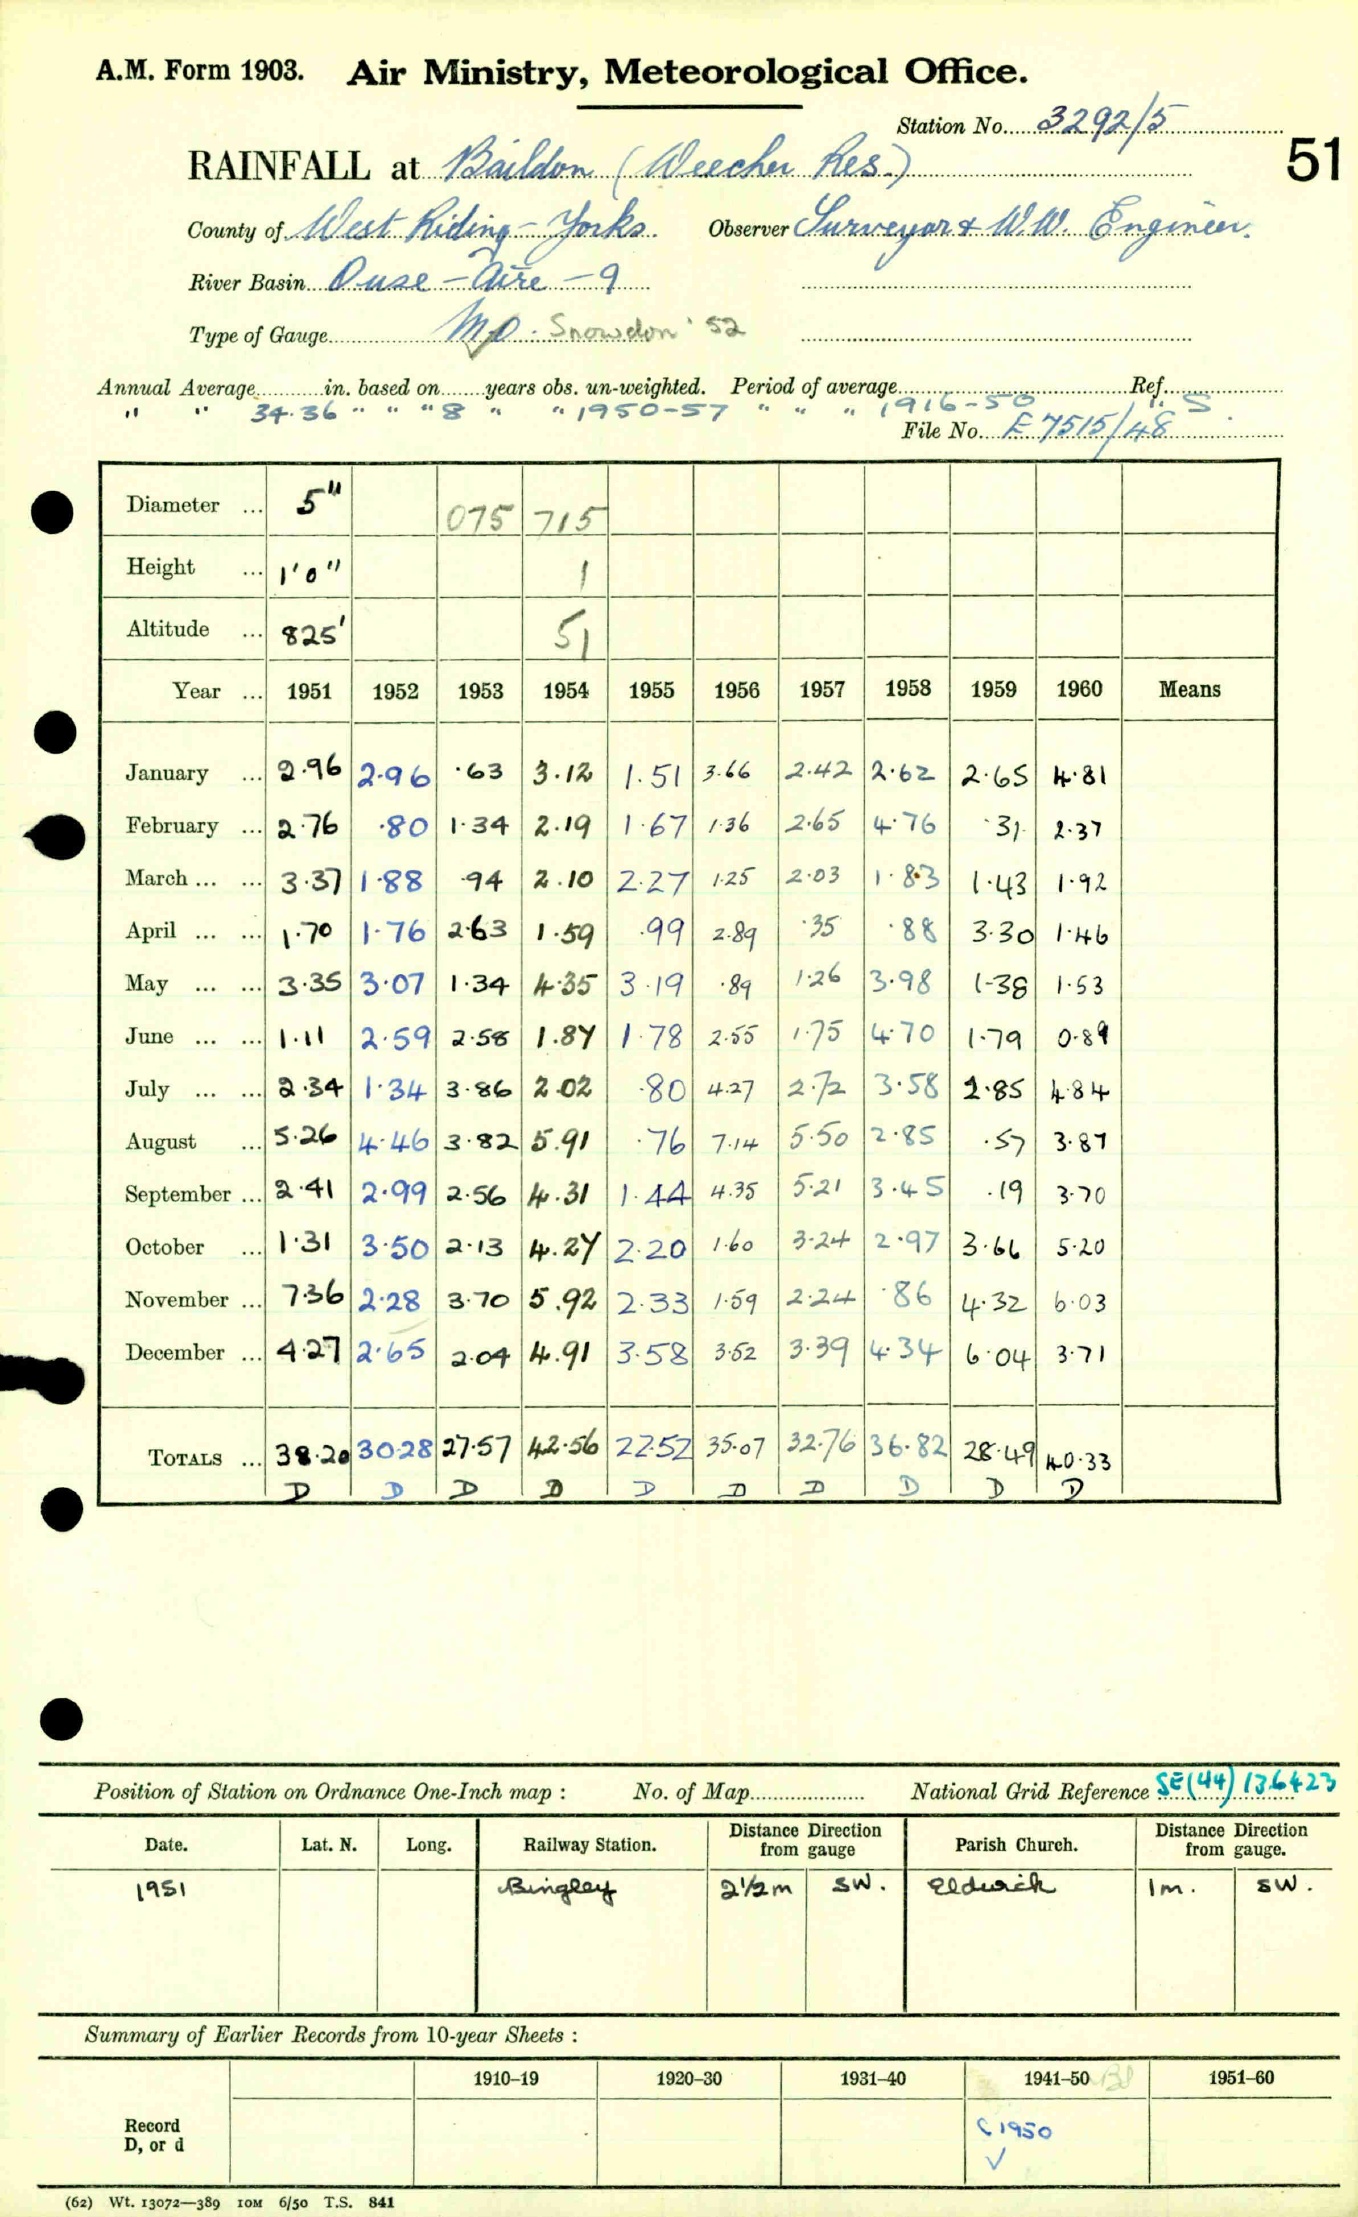 A.M. Form 1903. Air Ministry, Meteorological Office.
Station No. 3292/5
51
RAINFALL at Baildon (Weecher Res.)
County of West Riding - Yorks. Observer Surveyor & W.W. Engineer.
River Basin Ouse - Aire - 9
Type of Gauge M.O. Snowdon '52
Annual Average in. based on years obs. un-weighted. Period of average Ref.
" " 34.36 " " " 8 " " 1950-57 " " " 1916-50 " S
File No. E 7515/48
Diameter ... 5" 075 715
Height ... 1'0" 1
Altitude ... 825' 51
Year ... 1951 1952 1953 1954 1955 1956 1957 1958 1959 1960 Means
January ... 2.96 2.96 .63 3.12 1.51 3.66 2.42 2.62 2.65 4.81
February ... 2.76 .80 1.34 2.19 1.67 1.36 2.65 4.76 .31 2.37
March ... ... 3.37 1.88 .94 2.10 2.27 1.25 2.03 1.83 1.43 1.92
April ... ... 1.70 1.76 2.63 1.59 .99 2.89 .35 .88 3.30 1.46
May ... ... 3.35 3.07 1.34 4.35 3.19 .89 1.26 3.98 1.38 1.53
June ... ... 1.11 2.59 2.58 1.87 1.78 2.55 1.75 4.70 1.79 0.89
July ... ... 2.34 1.34 3.86 2.02 .80 4.27 2.72 3.58 2.85 4.84
August ... 5.26 4.46 3.82 5.91 .76 7.14 5.50 2.85 .57 3.87
September ... 2.41 2.99 2.56 4.31 1.44 4.35 5.21 3.45 .19 3.70
October ... 1.31 3.50 2.13 4.27 2.20 1.60 3.24 2.97 3.66 5.20
November ... 7.36 2.28 3.70 5.92 2.33 1.59 2.24 .86 4.32 6.03
December ... 4.27 2.65 2.04 4.91 3.58 3.52 3.39 4.34 6.04 3.71
TOTALS ... 38.20 30.28 27.57 42.56 22.52 35.07 32.76 36.82 28.49 40.33
D D D D D D D D D D
Position of Station on Ordnance One-Inch map : No. of Map National Grid Reference SE(44)136423
Date. Lat. N. Long. Railway Station. Distance from Direction gauge Parish Church. Distance from Direction gauge.
1951 Bingley 2½m SW. Eldwick 1m. SW.
Summary of Earlier Records from 10-year Sheets :
1910–19 1920–30 1931–40 1941–50 1951–60
Record D, or d 1950
(62) Wt. 13072—389 10M 6/50 T.S. 841